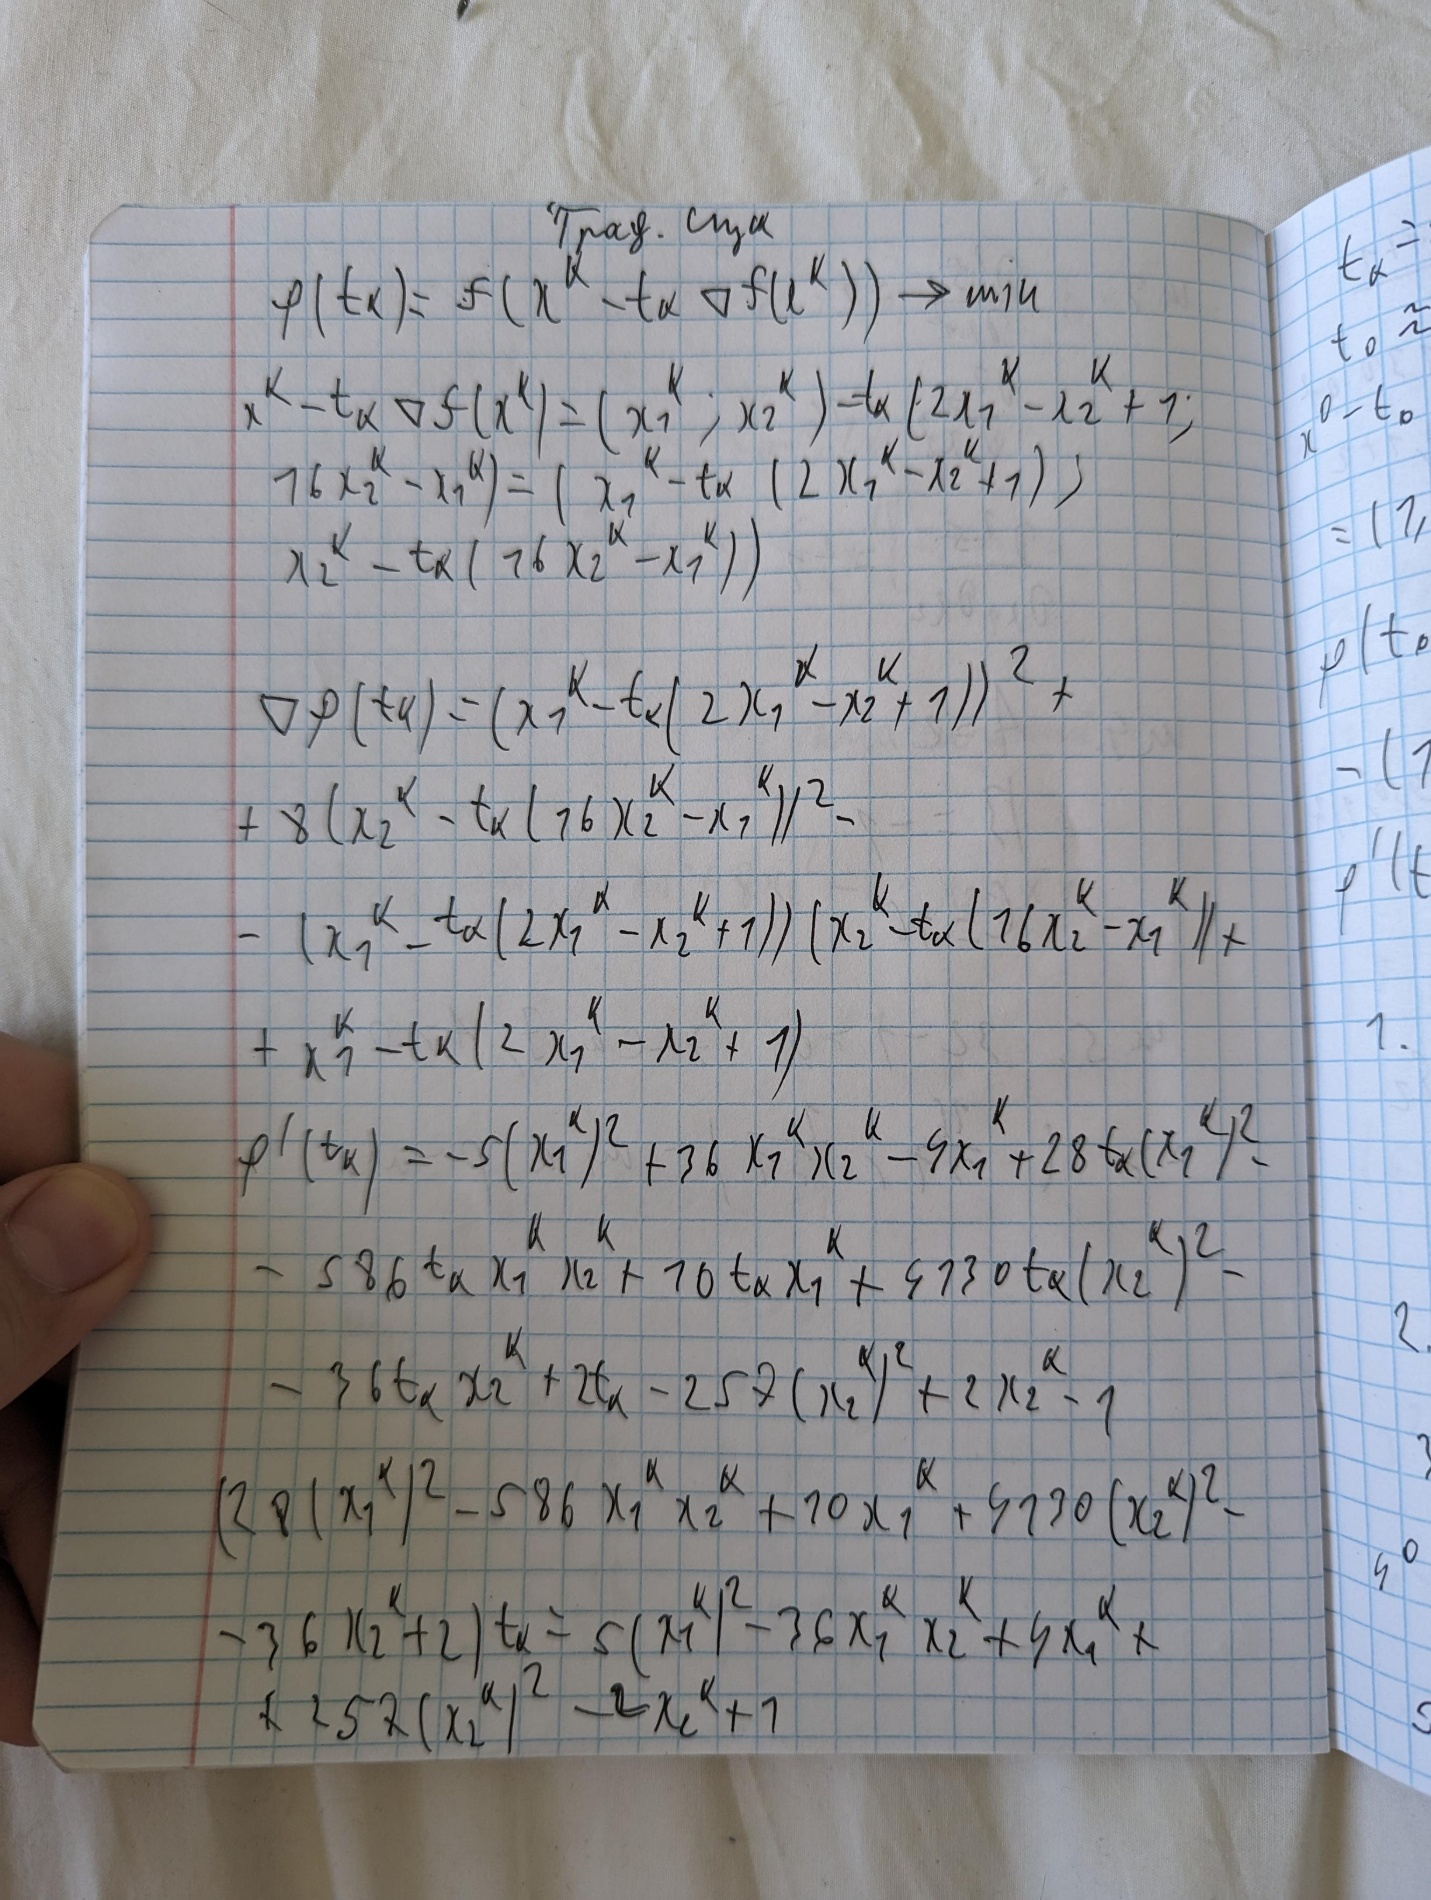 Град. спуск
φ(tₖ) = f(xᵏ - tₖ ∇f(xᵏ)) → min
xᵏ - tₖ ∇f(xᵏ) = (x₁ᵏ; x₂ᵏ) - tₖ (2x₁ᵏ - x₂ᵏ + 1;
16x₂ᵏ - x₁ᵏ) = (x₁ᵏ - tₖ (2x₁ᵏ - x₂ᵏ + 1);
x₂ᵏ - tₖ(16x₂ᵏ - x₁ᵏ))
∇φ(tₖ) = (x₁ᵏ - tₖ(2x₁ᵏ - x₂ᵏ + 1))² +
+ 8(x₂ᵏ - tₖ(16x₂ᵏ - x₁ᵏ))² -
- (x₁ᵏ - tₖ(2x₁ᵏ - x₂ᵏ + 1))(x₂ᵏ - tₖ(16x₂ᵏ - x₁ᵏ)) +
+ x₁ᵏ - tₖ(2x₁ᵏ - x₂ᵏ + 1)
φ'(tₖ) = -5(x₁ᵏ)² + 36x₁ᵏx₂ᵏ - 4x₁ᵏ + 28tₖ(x₁ᵏ)² -
- 586tₖx₁ᵏx₂ᵏ + 10tₖx₁ᵏ + 4130tₖ(x₂ᵏ)² -
- 36tₖx₂ᵏ + 2tₖ - 257(x₂ᵏ)² + 2x₂ᵏ - 1
(28(x₁ᵏ)² - 586x₁ᵏx₂ᵏ + 10x₁ᵏ + 4130(x₂ᵏ)² -
- 36x₂ᵏ + 2)tₖ = 5(x₁ᵏ)² - 36x₁ᵏx₂ᵏ + 4x₁ᵏ +
+ 257(x₂ᵏ)² - 2x₂ᵏ + 1
tₖ =
t₀ ≈
x⁰ - t₀
= (1,
φ(t₀
- (1
φ'(t
1.
2.
3